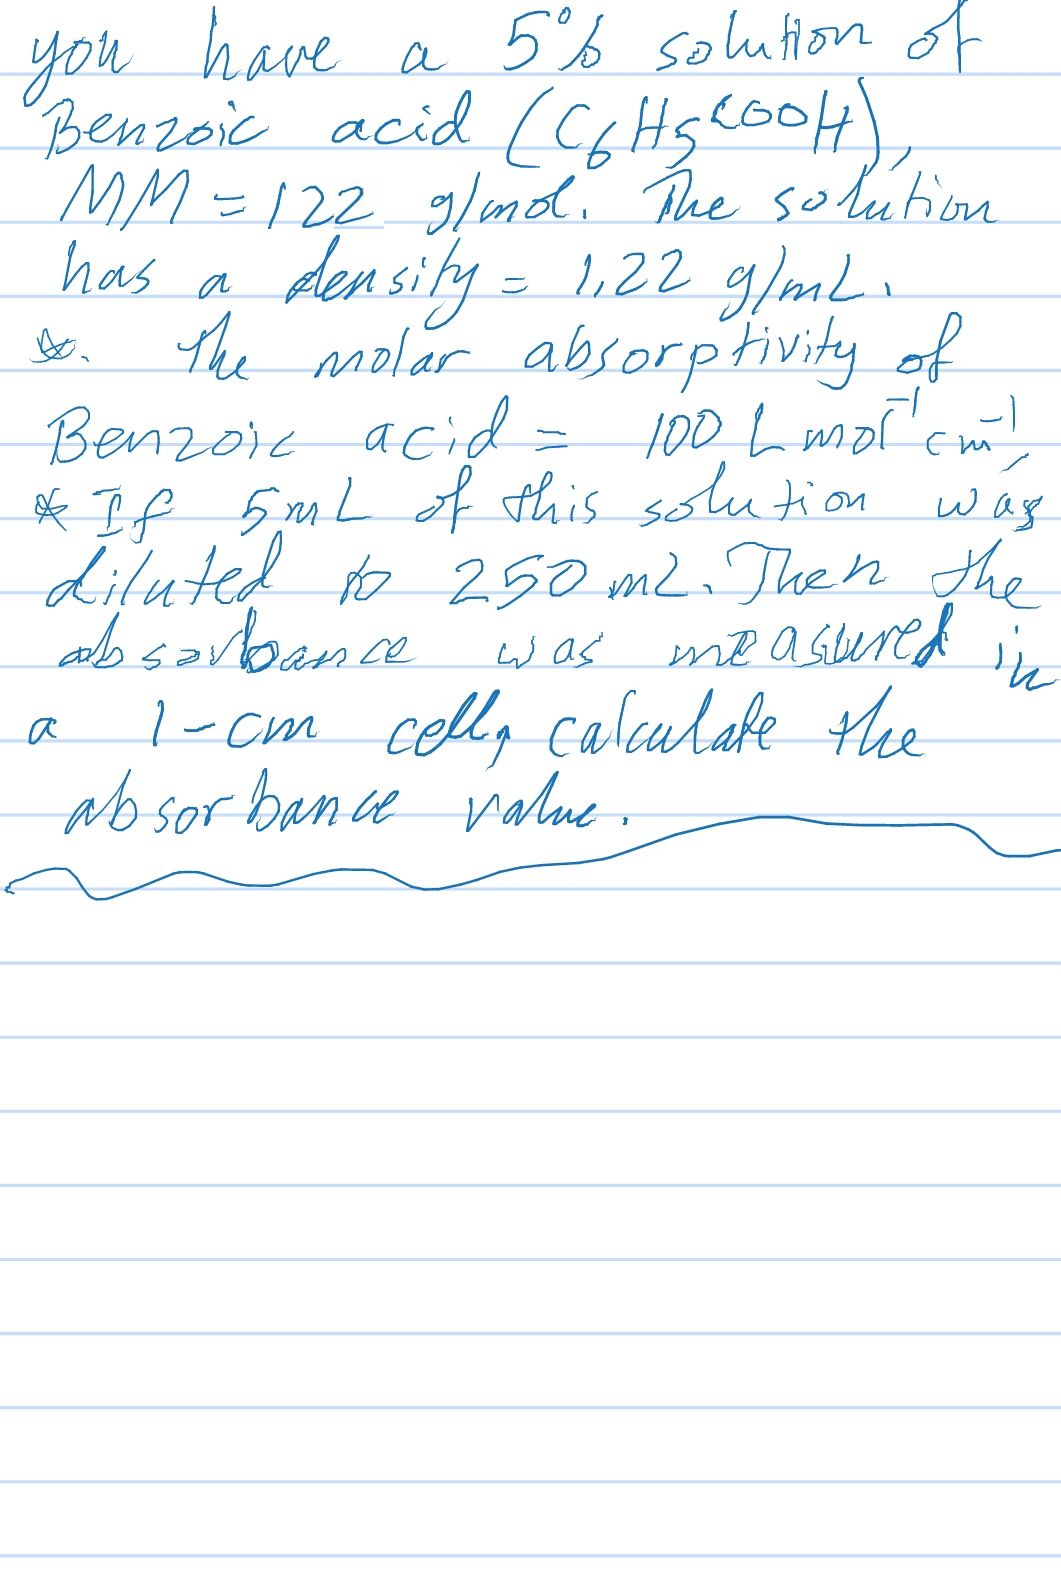 you have a 5% solution of
Benzoic acid (C6H5COOH),
MM = 122 g/mol. The solution
has a density = 1.22 g/mL.
☆. The molar absorptivity of
Benzoic acid = 100 L mol⁻¹ cm⁻¹,
* If 5mL of this solution was
diluted to 250 mL. Then the
absorbance was measured in
a 1-cm cell, calculate the
absorbance value.